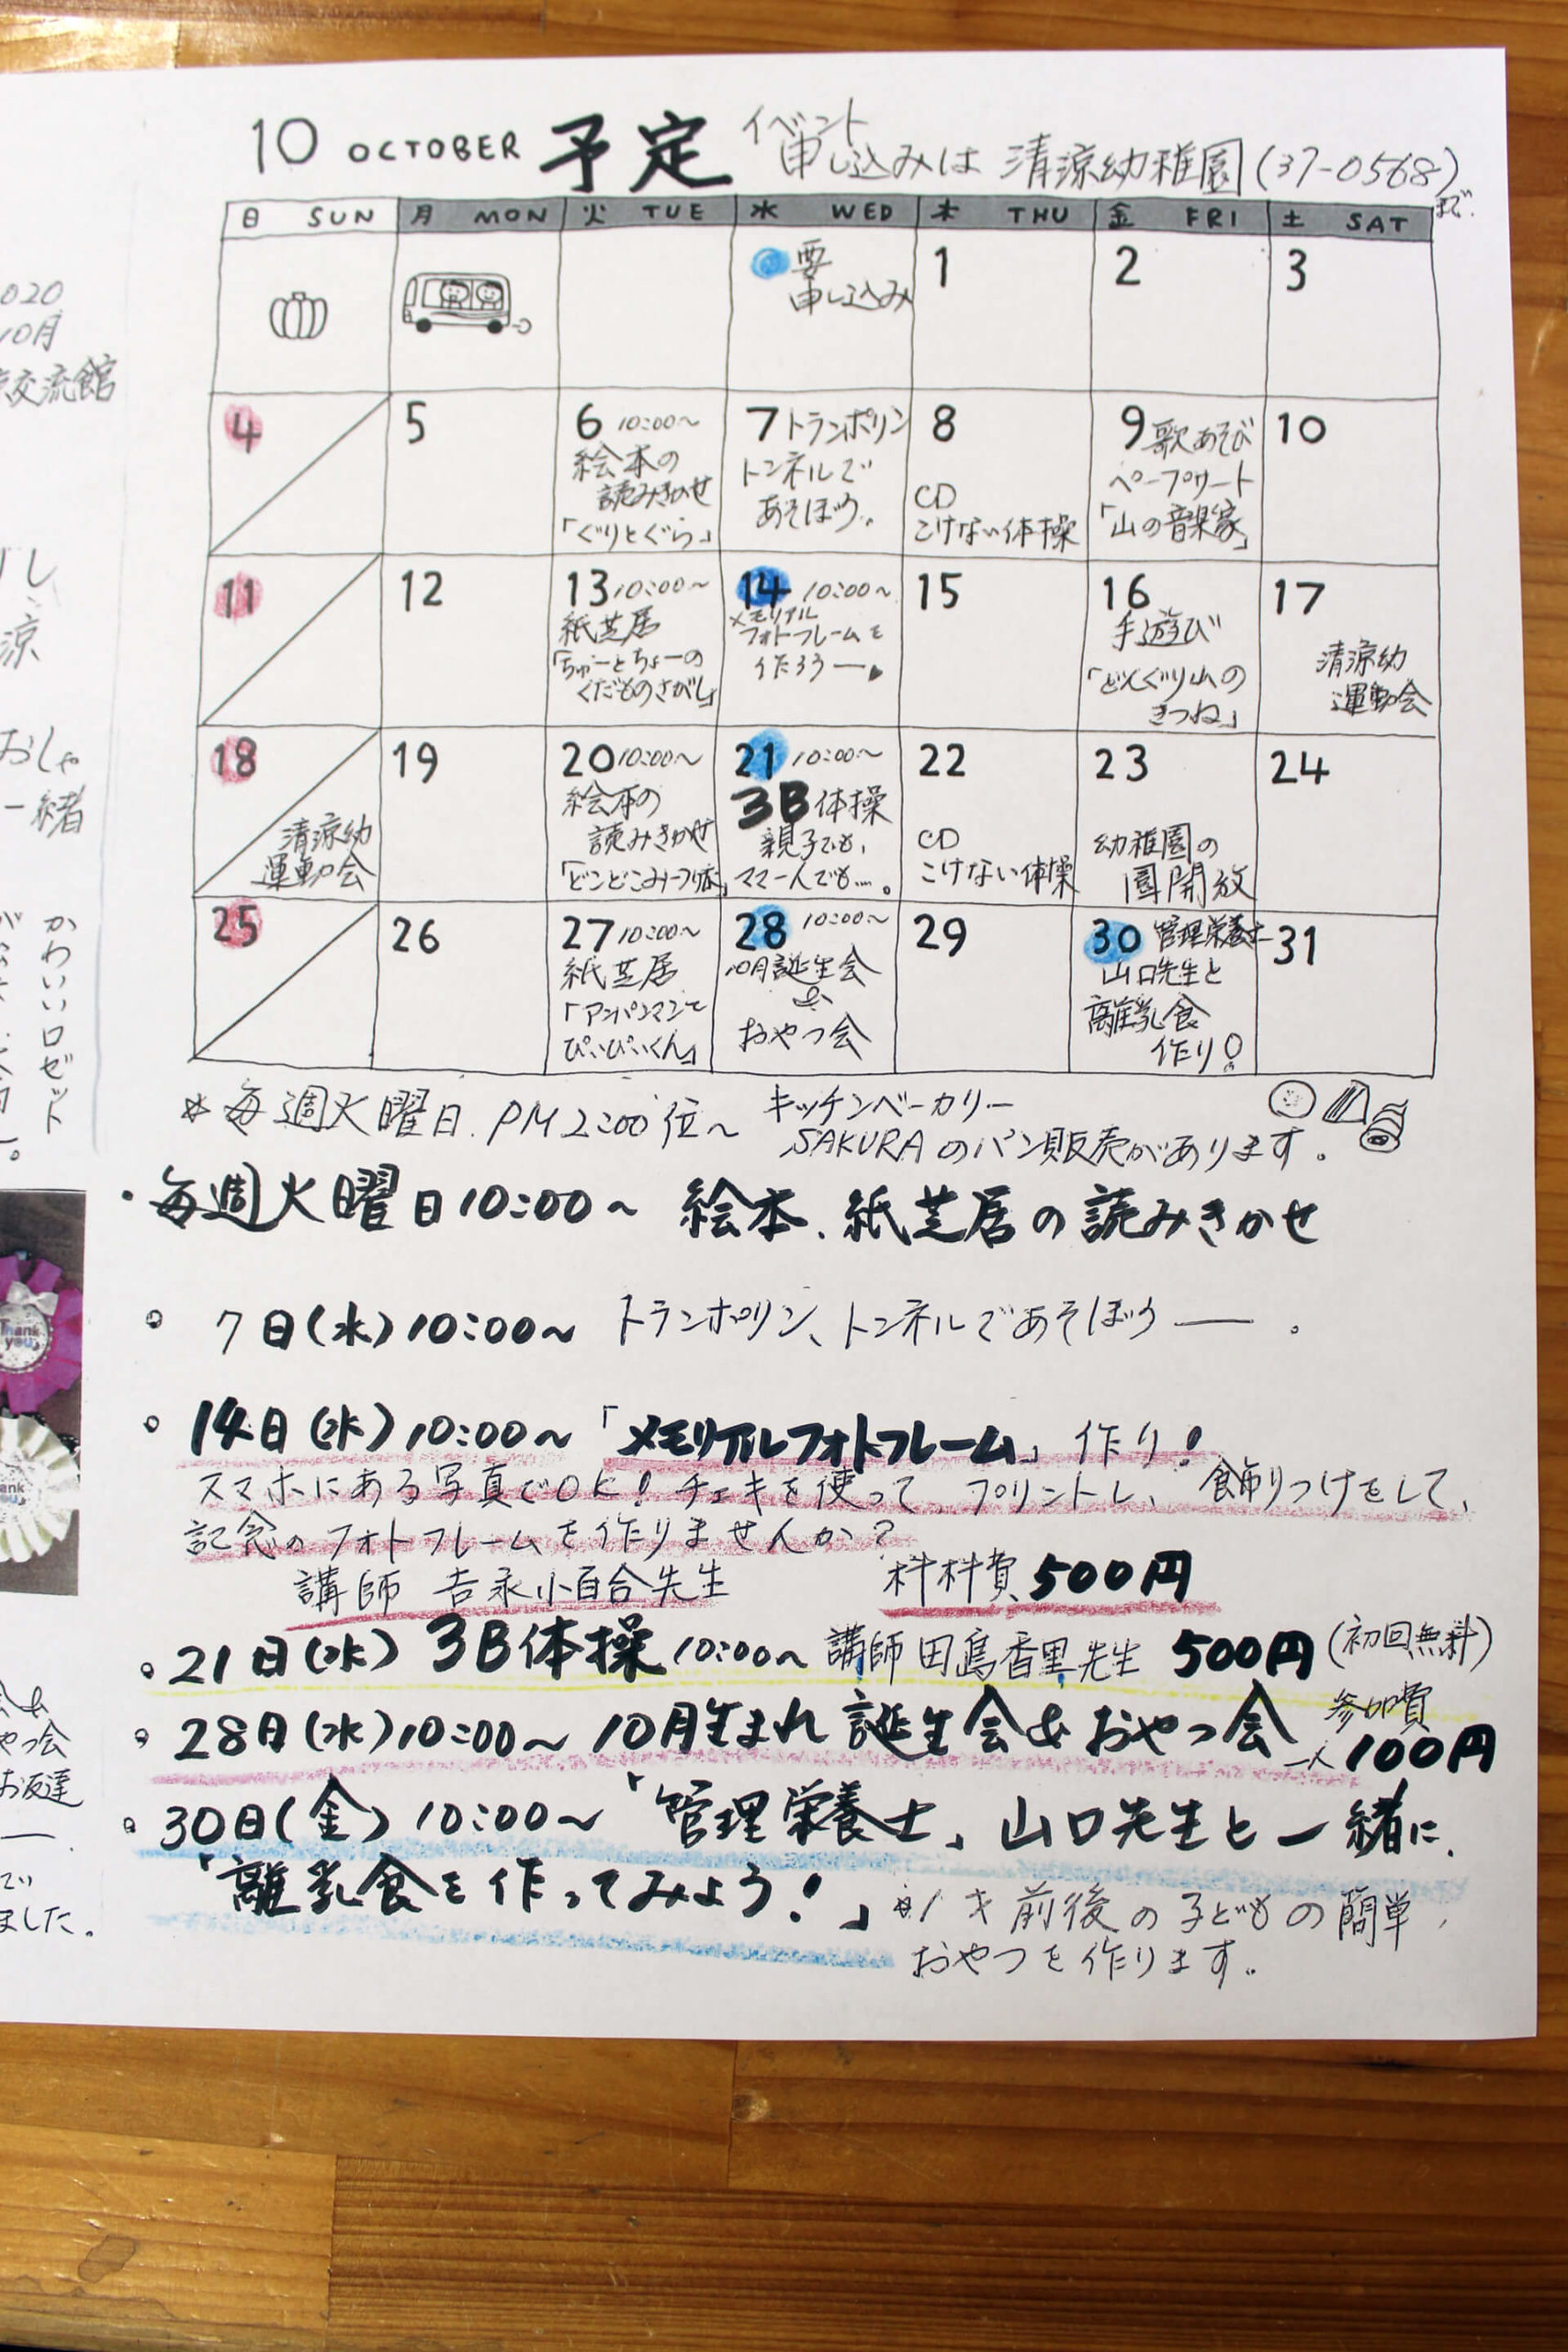 10 OCTOBER 予定 イベント
申し込みは 清涼幼稚園(37-0568)まで.
日 SUN 月 MON 火 TUE 水 WED 木 THU 金 FRI 土 SAT
要
申し込み
1
2
3
4
5
6 10:00〜
絵本の
読みきかせ
「ぐりとぐら」
7 トランポリン
トンネルで
あそぼう。
8
CD
こけない体操
9 歌あそび
ペープサート
「山の音楽家」
10
11
12
13 10:00〜
紙芝居
「ちゅーとちょーの
くだものさがし」
14 10:00〜
メモリアル
フォトフレームを
作ろうー
15
16
手遊び
「どんぐり山の
きつね」
17
清涼幼
運動会
18
清涼幼
運動会
19
20 10:00〜
絵本の
読みきかせ
21 10:00〜
3B体操
親子でも、
ママ一人でも…。
22
CD
こけない体操
23
幼稚園の
園開放
24
25
26
27 10:00〜
紙芝居
「アンパンマンと
ぴいぴいくん」
28 10:00〜
10月誕生会
&
おやつ会
29
30 管理栄養士
山口先生と
離乳食
作り!
31
*毎週火曜日.PM2:00位〜 キッチンベーカリー
SAKURAのパン販売があります。
・毎週火曜日10:00〜 絵本、紙芝居の読みきかせ
○ 7日(水)10:00〜 トランポリン、トンネルであそぼうー。
○ 14日(水)10:00〜「メモリアルフォトフレーム」作り!
スマホにある写真でOK!チェキを使って、プリントし、飾りつけをして、
記念のフォトフレームを作りませんか?
講師 吉永小百合先生 材料費 500円
○ 21日(水) 3B体操 10:00〜 講師 田島香里先生 500円(初回無料)
○ 28日(水)10:00〜 10月生まれ 誕生会&おやつ会 参加費
一人100円
○ 30日(金) 10:00〜「管理栄養士」山口先生と一緒に.
「離乳食を作ってみよう!」※1才前後の子どもの簡単
おやつを作ります。
020
10月
交流館
涼
おしゃ
一緒
かわいいロゼット
Thank
you
やつ会
お友達
ました。